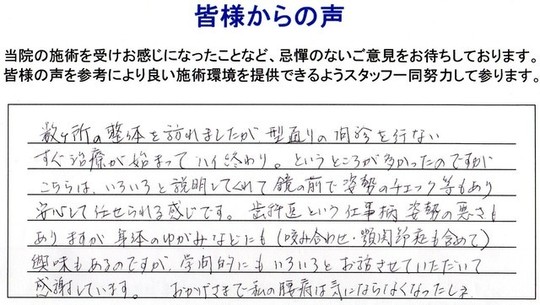 皆様からの声
当院の施術を受けお感じになったことなど、忌憚のないご意見をお待ちしております。
皆様の声を参考により良い施術環境を提供できるようスタッフ一同努力して参ります。
数ヶ所の整体を訪れましたが、型通りの問診を行ない
すぐ治療が始まってハイ終わり。というところが多かったのですが
こちらは、いろいろと説明してくれて鏡の前で姿勢のチェック等もあり
安心して任せられる感じです。歯科医という仕事柄 姿勢の悪さも
ありますが身体のゆがみなどにも(咬み合わせ・顎関節症も含めて)
興味もあるのですが、学問的にもいろいろとお話させていただいて
感謝しています。 おかげさまで私の腰痛は気にならなくなったしネ